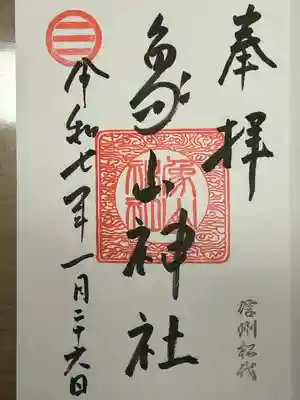 奉拝
象山神社
令和七年一月二十六日
信州松代